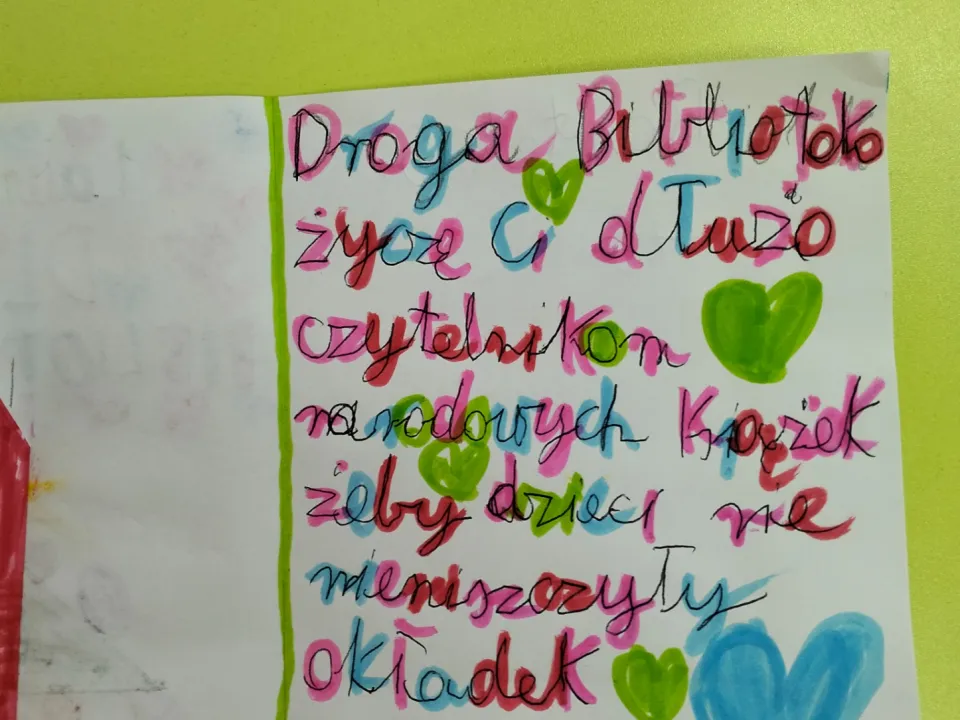 Droga Biblioteko
życzę Ci dłużo
czytelnikom
narodowych Książek
żeby dzieci nie
nieniszczyły
okładek